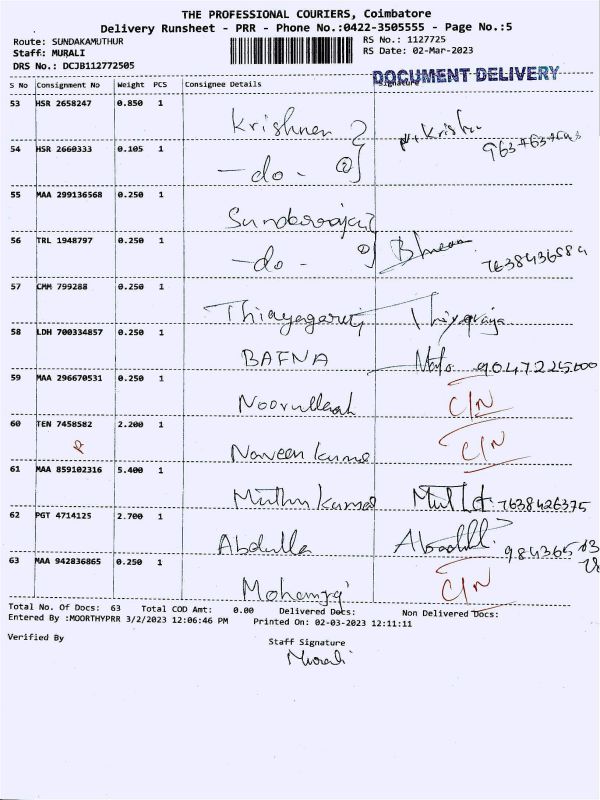 THE PROFESSIONAL COURIERS, Coimbatore
Delivery Runsheet - PRR - Phone No.:0422-3505555 - Page No.:5
Route: SUNDAKAMUTHUR RS No.: 1127725
Staff: MURALI RS Date: 02-Mar-2023
DRS No.: DCJB112772505
DOCUMENT DELIVERY
S No Consignment No Weight PCS Consignee Details Signature
53 HSR 2658247 0.850 1
Krishnen
54 HSR 2660333 0.105 1
-do- 2
55 MAA 299136568 0.250 1
56 TRL 1948797 0.250 1
-do- 2 7638436584
57 CMM 799288 0.250 1
58 LDH 700334857 0.250 1
BAFNA 9047225000
59 MAA 296670531 0.250 1
Noorullah C/N
60 TEN 7458582 2.200 1
Naveen Kumar C/N
61 MAA 859102316 5.400 1
Muthu Kumar 7638426375
62 PGT 4714125 2.700 1
Abdulla
63 MAA 942836865 0.250 1
C/N
Total No. Of Docs: 63 Total COD Amt: 0.00 Delivered Docs: Non Delivered Docs:
Entered By :MOORTHYPRR 3/2/2023 12:06:46 PM Printed On: 02-03-2023 12:11:11
Verified By Staff Signature
Murali